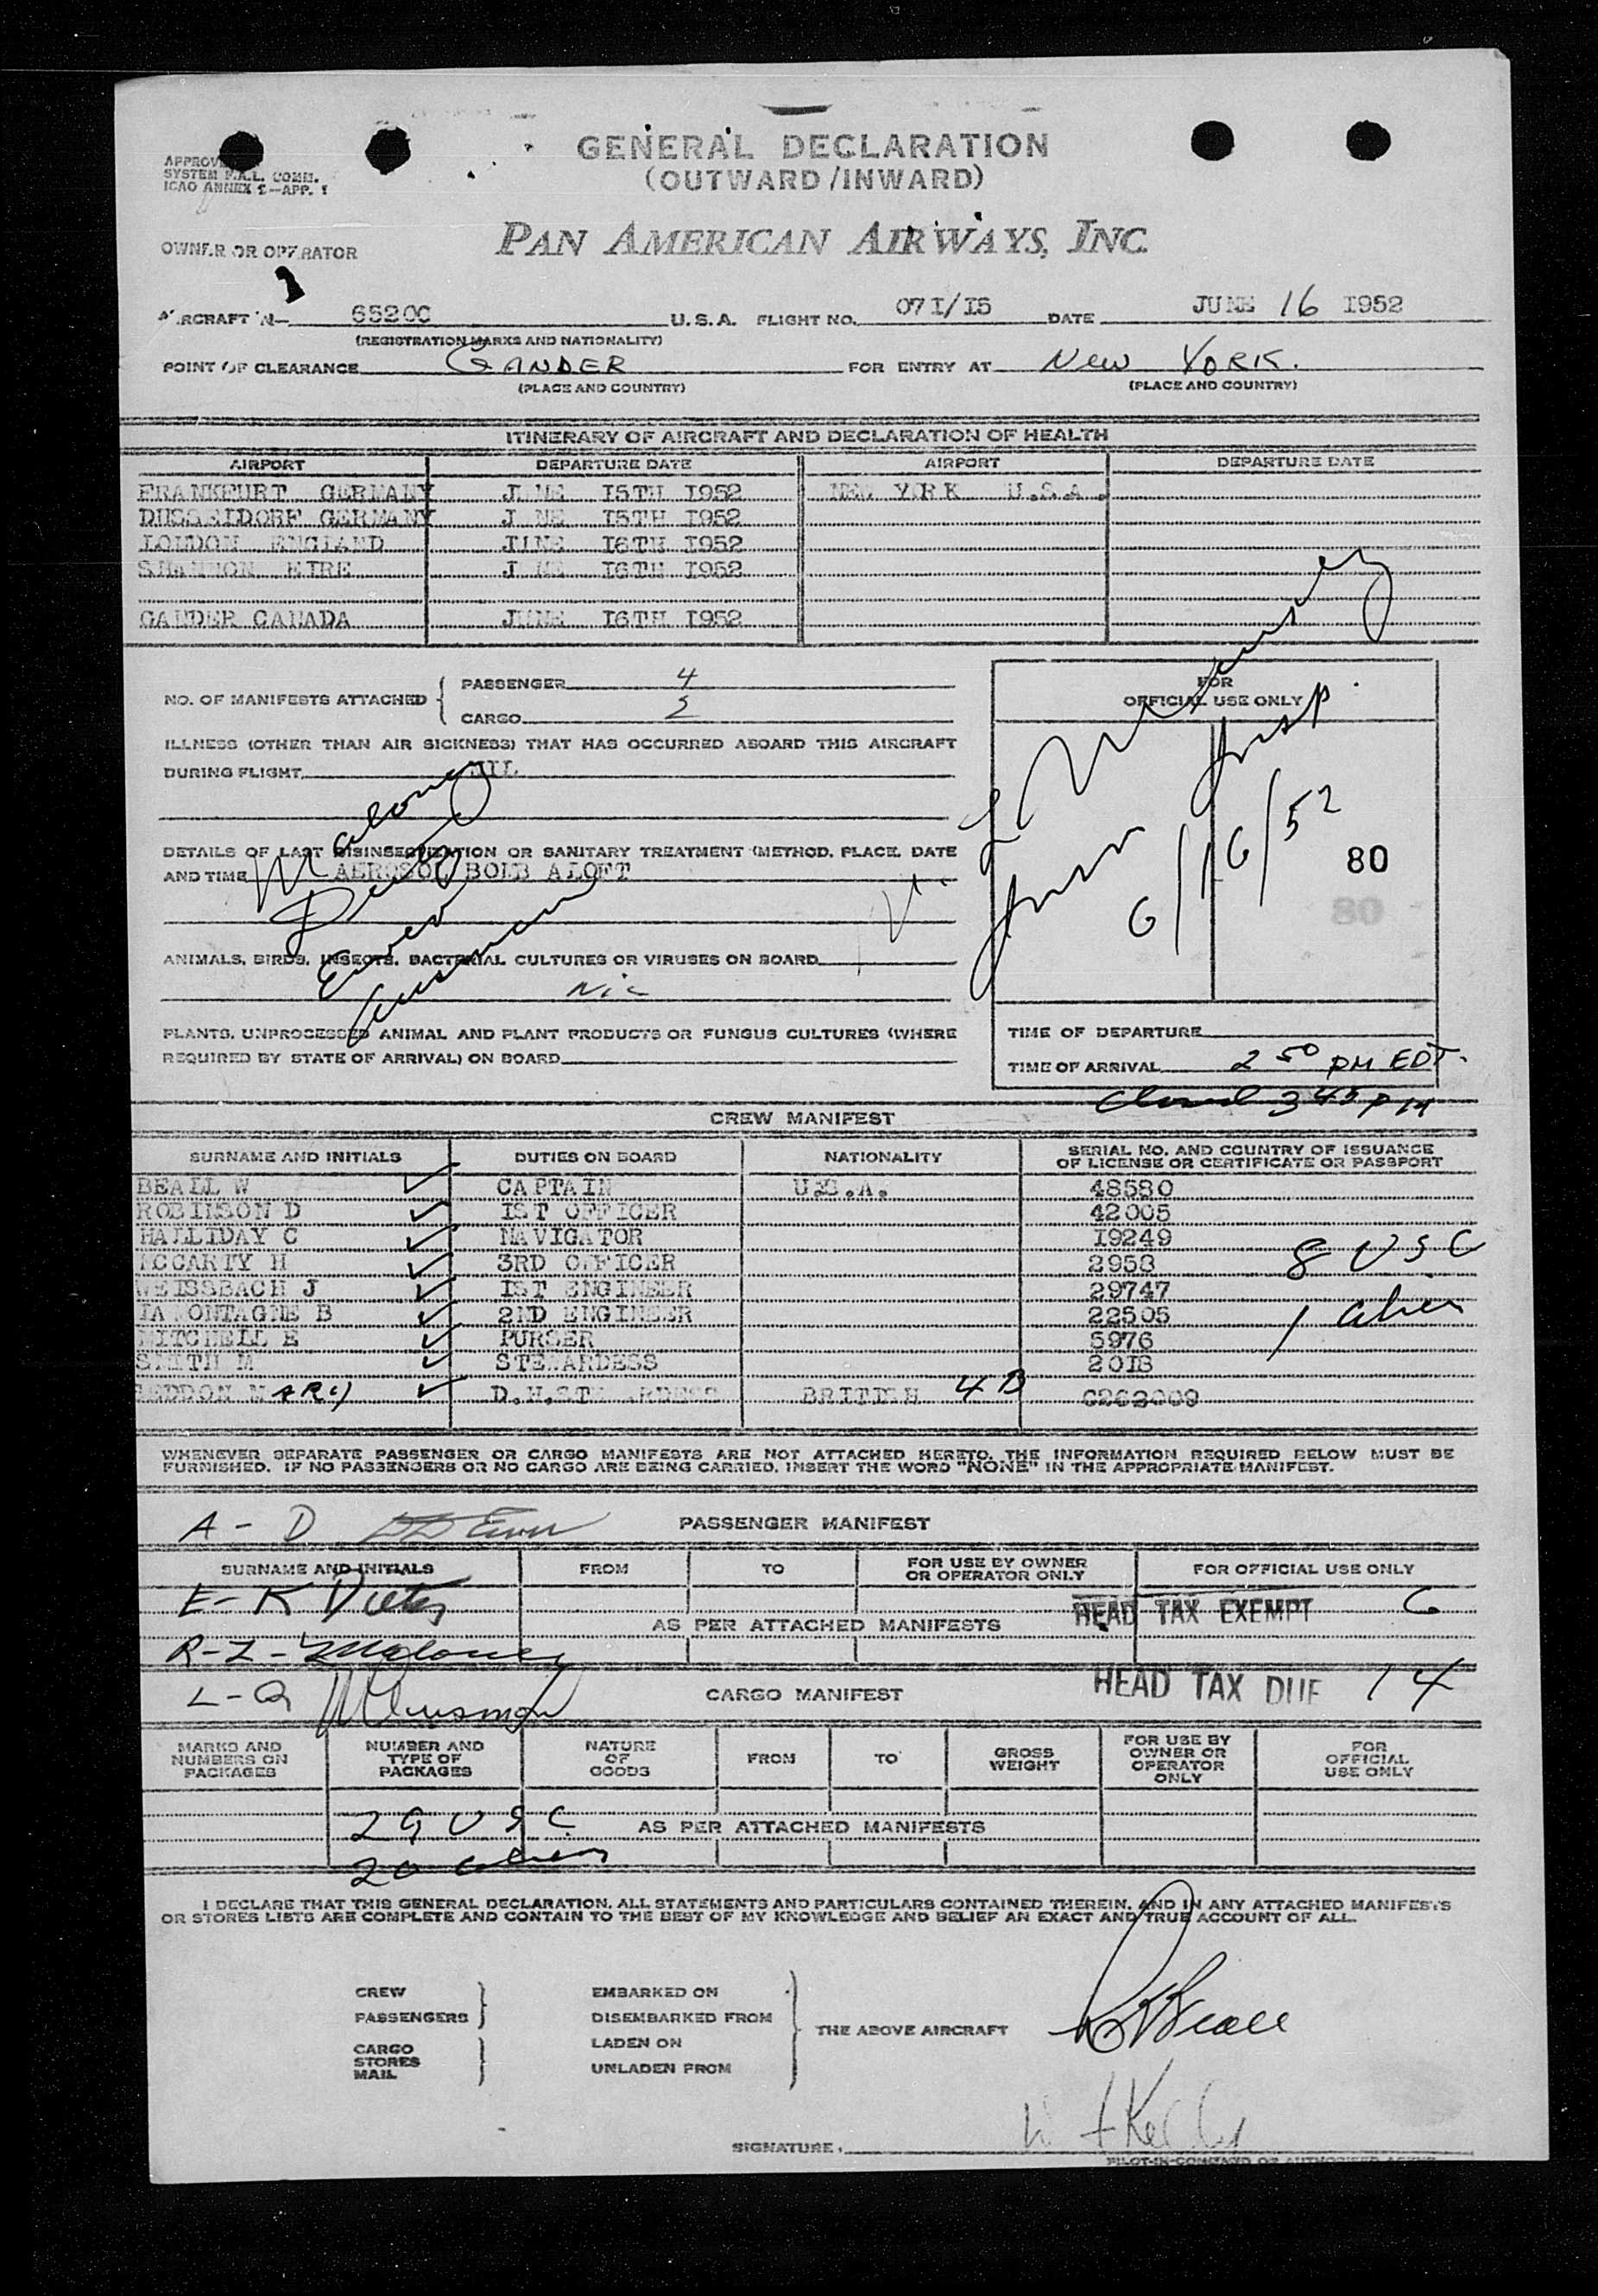 GENERAL DECLARATION
(OUTWARD/INWARD)
SYSTEM F.A.L. COMM.
ICAO ANNEX 2—APP. 1
OWNER OR OPERATOR
PAN AMERICAN AIRWAYS, INC.
AIRCRAFT N— 65200 U.S.A. FLIGHT NO. 071/15 DATE JUNE 16 1952
(REGISTRATION MARKS AND NATIONALITY)
POINT OF CLEARANCE GANDER FOR ENTRY AT NEW YORK.
(PLACE AND COUNTRY) (PLACE AND COUNTRY)
ITINERARY OF AIRCRAFT AND DECLARATION OF HEALTH
AIRPORT DEPARTURE DATE AIRPORT DEPARTURE DATE
FRANKFURT GERMANY JUNE 15TH 1952 NEW YORK U.S.A.
DUSSELDORF GERMANY JUNE 15TH 1952
LONDON ENGLAND JUNE 16TH 1952
SHANNON EIRE JUNE 16TH 1952
GANDER CANADA JUNE 16TH 1952
NO. OF MANIFESTS ATTACHED { PASSENGER 4
CARGO 2
FOR
OFFICIAL USE ONLY
ILLNESS (OTHER THAN AIR SICKNESS) THAT HAS OCCURRED ABOARD THIS AIRCRAFT
DURING FLIGHT NIL
Insp.
6/16/52
80
80
Maloney
DETAILS OF LAST DISINSECTIZATION OR SANITARY TREATMENT (METHOD, PLACE, DATE
AND TIME AEROSOL BOLB ALOFT
ANIMALS, BIRDS, INSECTS, BACTERIAL CULTURES OR VIRUSES ON BOARD
NIL
PLANTS, UNPROCESSED ANIMAL AND PLANT PRODUCTS OR FUNGUS CULTURES (WHERE
REQUIRED BY STATE OF ARRIVAL) ON BOARD
TIME OF DEPARTURE
TIME OF ARRIVAL 2 50 PM EDT.
Closed 3 45 PM
CREW MANIFEST
SURNAME AND INITIALS DUTIES ON BOARD NATIONALITY SERIAL NO. AND COUNTRY OF ISSUANCE
OF LICENSE OR CERTIFICATE OR PASSPORT
BEALL W CAPTAIN U.S.A. 48580
ROBINSON D 1ST OFFICER 42005
HALLIDAY C NAVIGATOR 19249
MCCARTY H 3RD OFFICER 2958 8 USC
WEISSBACH J 1ST ENGINEER 29747
LAMONTAGNE B 2ND ENGINEER 22505 1 alien
MITCHELL E PURSER 5976
SMITH M STEWARDESS 2018
SEDDON MARY D.H.STEWARDESS BRITISH 4B C262009
WHENEVER SEPARATE PASSENGER OR CARGO MANIFESTS ARE NOT ATTACHED HERETO, THE INFORMATION REQUIRED BELOW MUST BE
FURNISHED. IF NO PASSENGERS OR NO CARGO ARE BEING CARRIED, INSERT THE WORD "NONE" IN THE APPROPRIATE MANIFEST.
A - D PASSENGER MANIFEST
SURNAME AND INITIALS FROM TO FOR USE BY OWNER
OR OPERATOR ONLY FOR OFFICIAL USE ONLY
E - K HEAD TAX EXEMPT 6
AS PER ATTACHED MANIFESTS
R-Z - Maloney
L-Q CARGO MANIFEST HEAD TAX DUE 14
MARKS AND
NUMBERS ON
PACKAGES NUMBER AND
TYPE OF
PACKAGES NATURE
OF
GOODS FROM TO GROSS
WEIGHT FOR USE BY
OWNER OR
OPERATOR
ONLY FOR
OFFICIAL
USE ONLY
29 USC AS PER ATTACHED MANIFESTS
20 aliens
I DECLARE THAT THIS GENERAL DECLARATION, ALL STATEMENTS AND PARTICULARS CONTAINED THEREIN, AND IN ANY ATTACHED MANIFESTS
OR STORES LISTS ARE COMPLETE AND CONTAIN TO THE BEST OF MY KNOWLEDGE AND BELIEF AN EXACT AND TRUE ACCOUNT OF ALL.
CREW
PASSENGERS
CARGO
STORES
MAIL
EMBARKED ON
DISEMBARKED FROM
LADEN ON
UNLADEN FROM
THE ABOVE AIRCRAFT
SIGNATURE.
PILOT-IN-COMMAND OR AUTHORISED AGENT